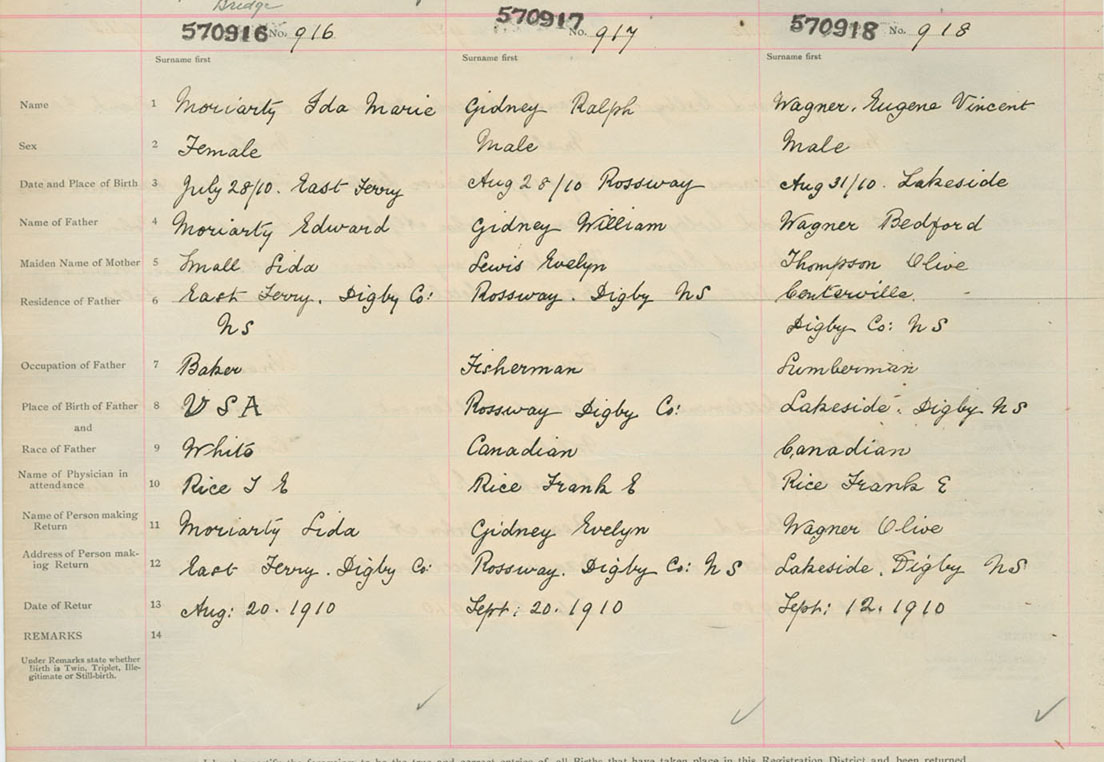 Bridge
570916 No. 916 570917 No. 917 570918 No. 918
Surname first Surname first Surname first
Name 1 Moriarty Ida Marie Gidney Ralph Wagner, Eugene Vincent
Sex 2 Female Male Male
Date and Place of Birth 3 July 28/10. East Ferry Aug 28/10 Rossway Aug 31/10. Lakeside
Name of Father 4 Moriarty Edward Gidney William Wagner Bedford
Maiden Name of Mother 5 Small Lida Lewis Evelyn Thompson Olive
Residence of Father 6 East Ferry. Digby Co: Rossway. Digby NS Centerville.
NS Digby Co: NS
Occupation of Father 7 Baker Fisherman Lumberman
Place of Birth of Father 8 U S A Rossway Digby Co: Lakeside. Digby NS
and
Race of Father 9 White Canadian Canadian
Name of Physician in
attendance 10 Rice F E Rice Frank E Rice Frank E
Name of Person making
Return 11 Moriarty Lida Gidney Evelyn Wagner Olive
Address of Person mak-
ing Return 12 East Ferry. Digby Co: Rossway. Digby Co: NS Lakeside. Digby NS
Date of Retur 13 Aug: 20. 1910 Sept: 20. 1910 Sept: 12. 1910
REMARKS 14
Under Remarks state whether
Birth is Twin, Triplet, Ille-
gitimate or Still-birth.
the foregoing to be the true and correct entries of all Births that have taken place in this Registration District and been returned